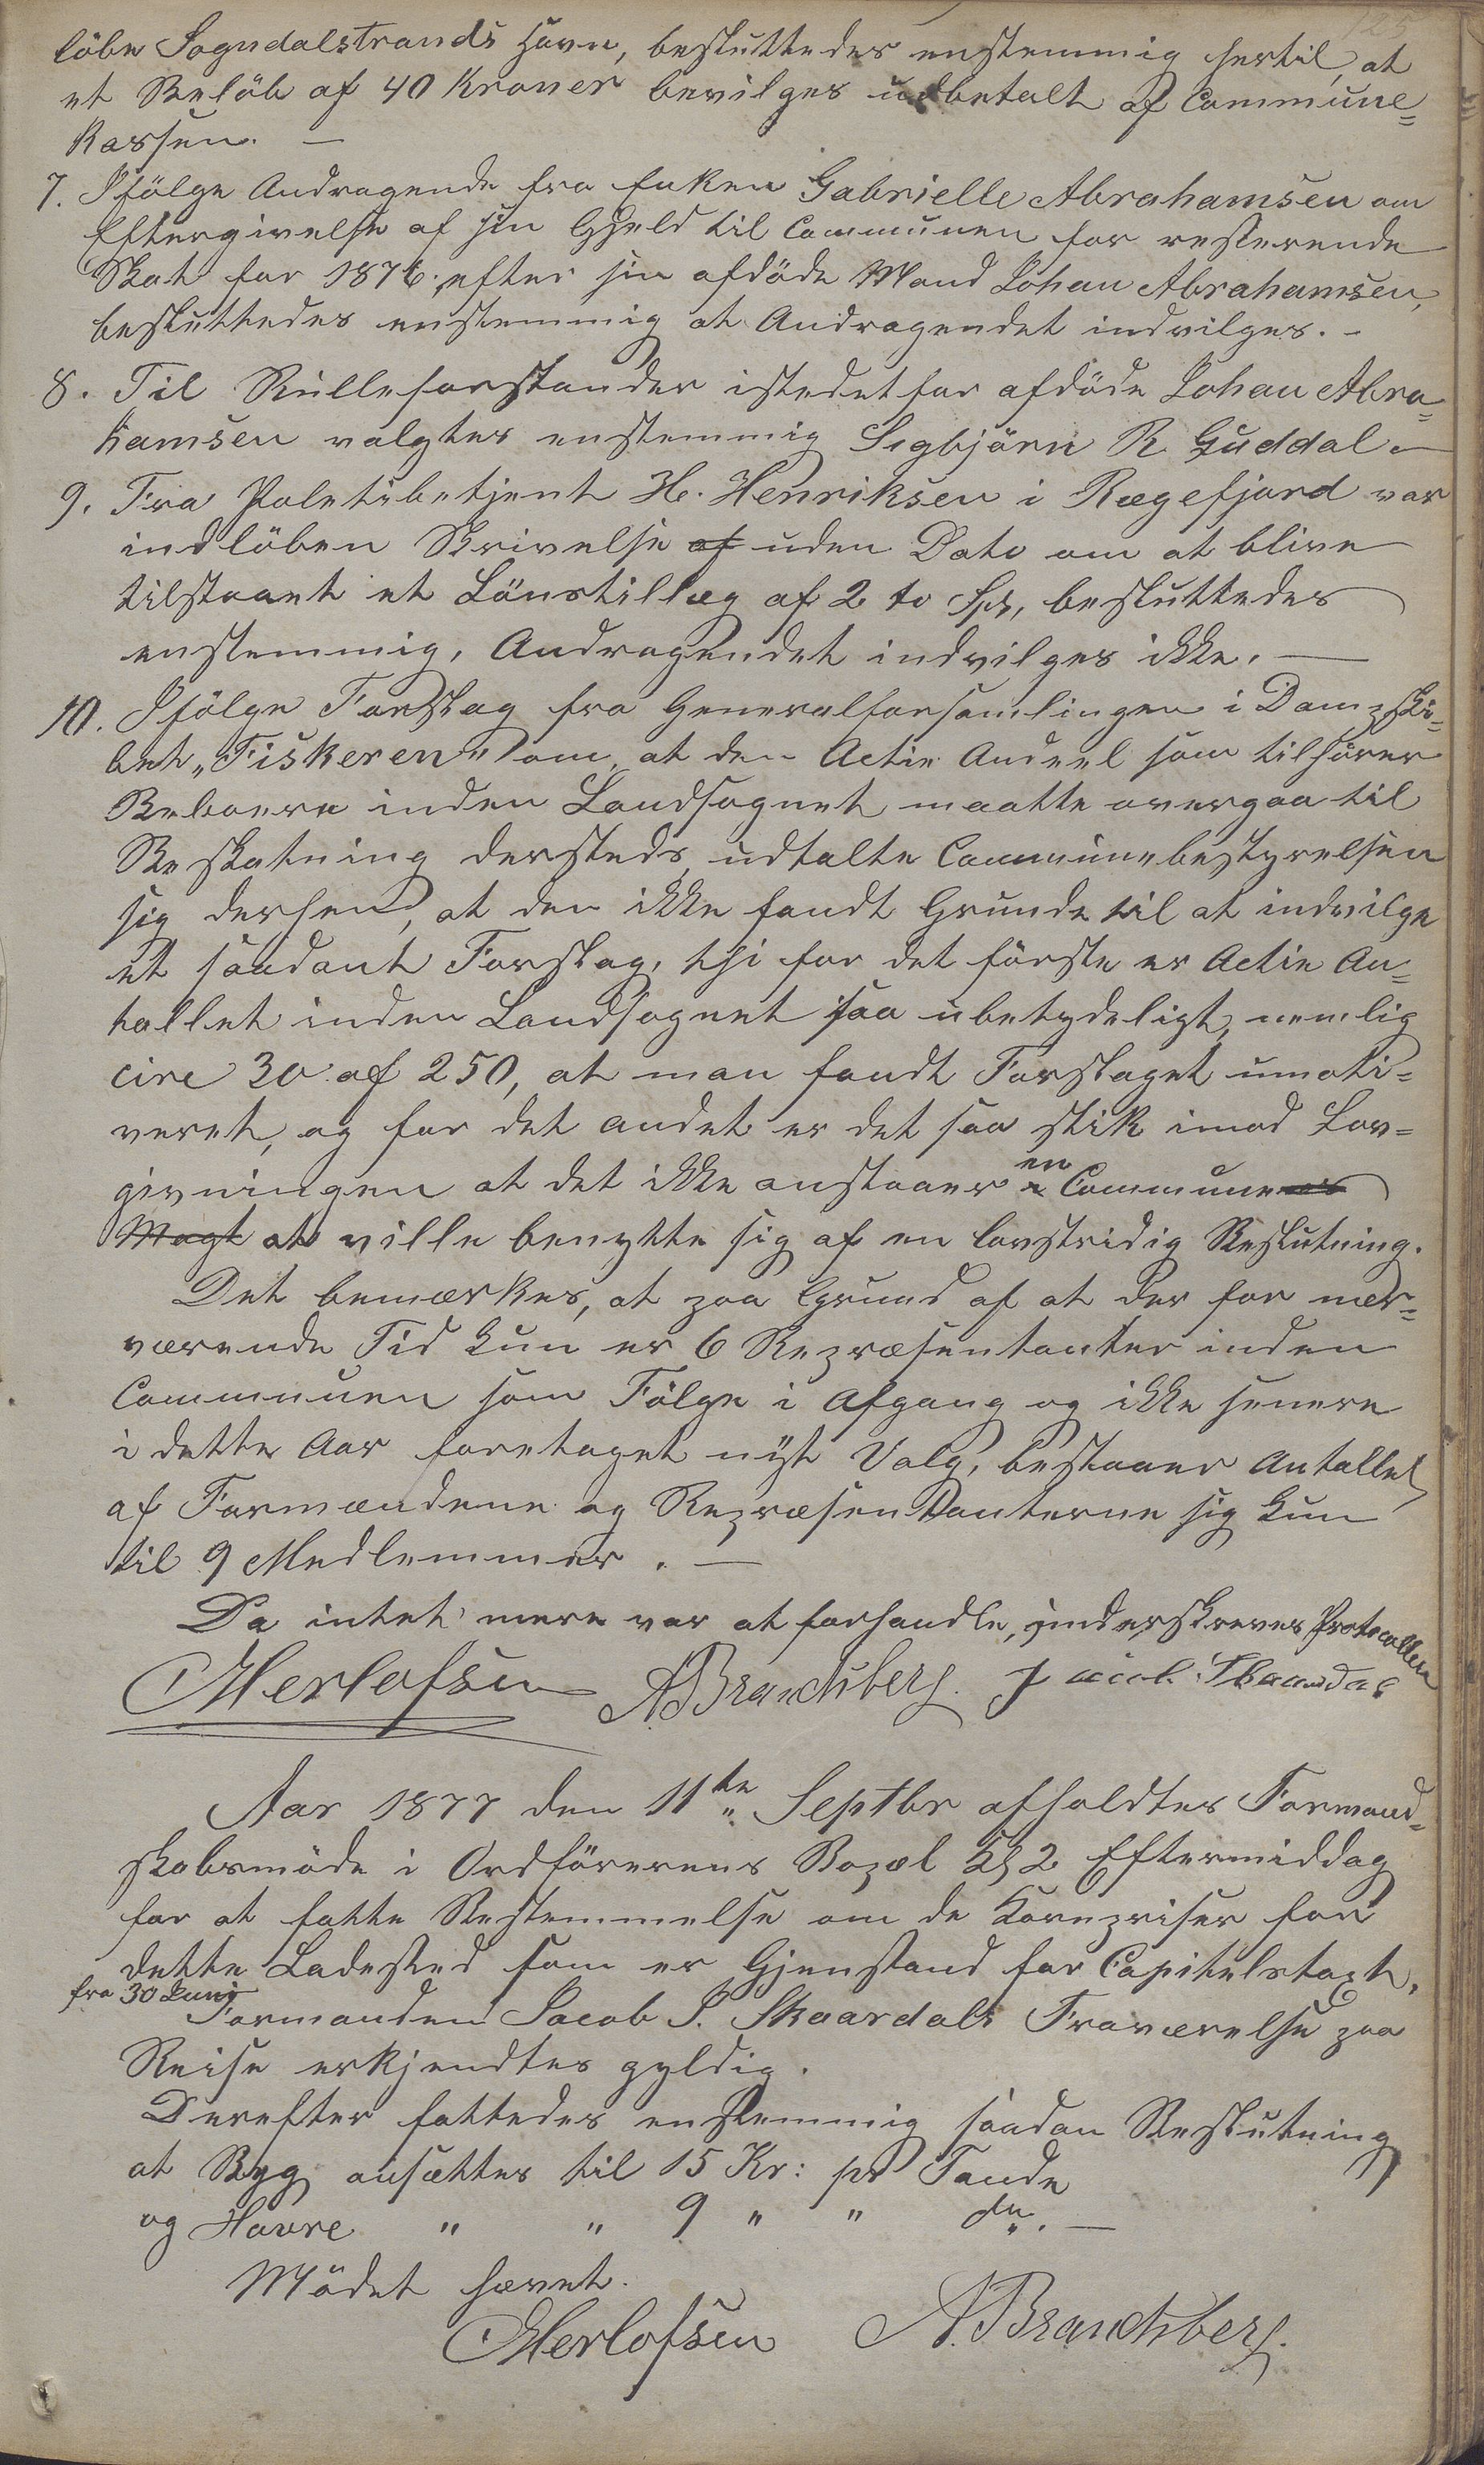 125
löbe Sogndalstrands Havn, besluttedes enstemmig hertil, at
et Belöb af 40 Kroner bevilges udbetalt af Commune=
kassen. —
7. Ifölge Andragende fra Enken Gabrielle Abrahamsen om
Eftergivelse af sin Gjeld til Communen for resterende
Skat for 1876. efter sin afdöde Mand Johan Abrahamsen,
besluttedes enstemmig at Andragendet indvilges. –
8. Til Rulleforstander istedetfor afdöde Johan Abra=
hamsen valgtes enstemmig Sigbjörn R Guddal. –
9. Fra Poletibetjent H. Henriksen i Rægefjord var
indlöben Skrivelse af uden Dato om at blive
tilstaaet et Lönstillæg af 2 to Spd, besluttedes
enstemmig, Andragendet indvilges ikke. —
10. Ifölge Forslag fra Generalforsamlingen i Dampski=
bet „Fiskeren" om, at den Actie Andeel som tilhörer
Beboere inden Landsognet maatte overgaa til
Beskatning dersteds, udtalte Communebestyrelsen
sig derhen, at den ikke fandt Grunde til at indvilge
et saadant Forslag, thi for det förste er Actie An=
tallet inden Landsognet saa ubetydeligt, nemlig
circ 30 af 250, at man fandt Forslaget umoti=
veret, og for det andet er det saa stik imod Lov=
givningen at det ikke anstaaer en Commune
Magt at ville benytte sig af en lovstridig Beslutning.
Det bemærkes, at paa Grund af at der for nær=
værende Tid kun er 6 Repræsentanter inden
Communen som Fölge i Afgang og ikke senere
i dette Aar foretaget nyt Valg, bestaaer Antallet
af Formændene og Repræsentanterne sig kun
til 9 Medlemmer. —
Da intet mere var at forhandle, underskreves Protocollen
Herlofsen A Brandsberg. Jacob
Aar 1877 den 11te Septbr afholdtes Formand=
skabsmöde i Ordförerens Bopæl Kl 2 Eftermiddag
for at fatte Bestemmelse om de Kornpriser for
dette Ladested som er Gjenstand for Capitelstaxt,
fra 30 Juni
Formanden Jacob S. Skaardals Fraværelse paa
Reise erkjendtes gyldig.
Derefter fattedes enstemmig saadan Beslutning
at Byg ansættes til 15 Kr: pr Tønde
og Havre " " 9 " " do. —
Mödet hævet.
Herlofsen A. Brandsberg.